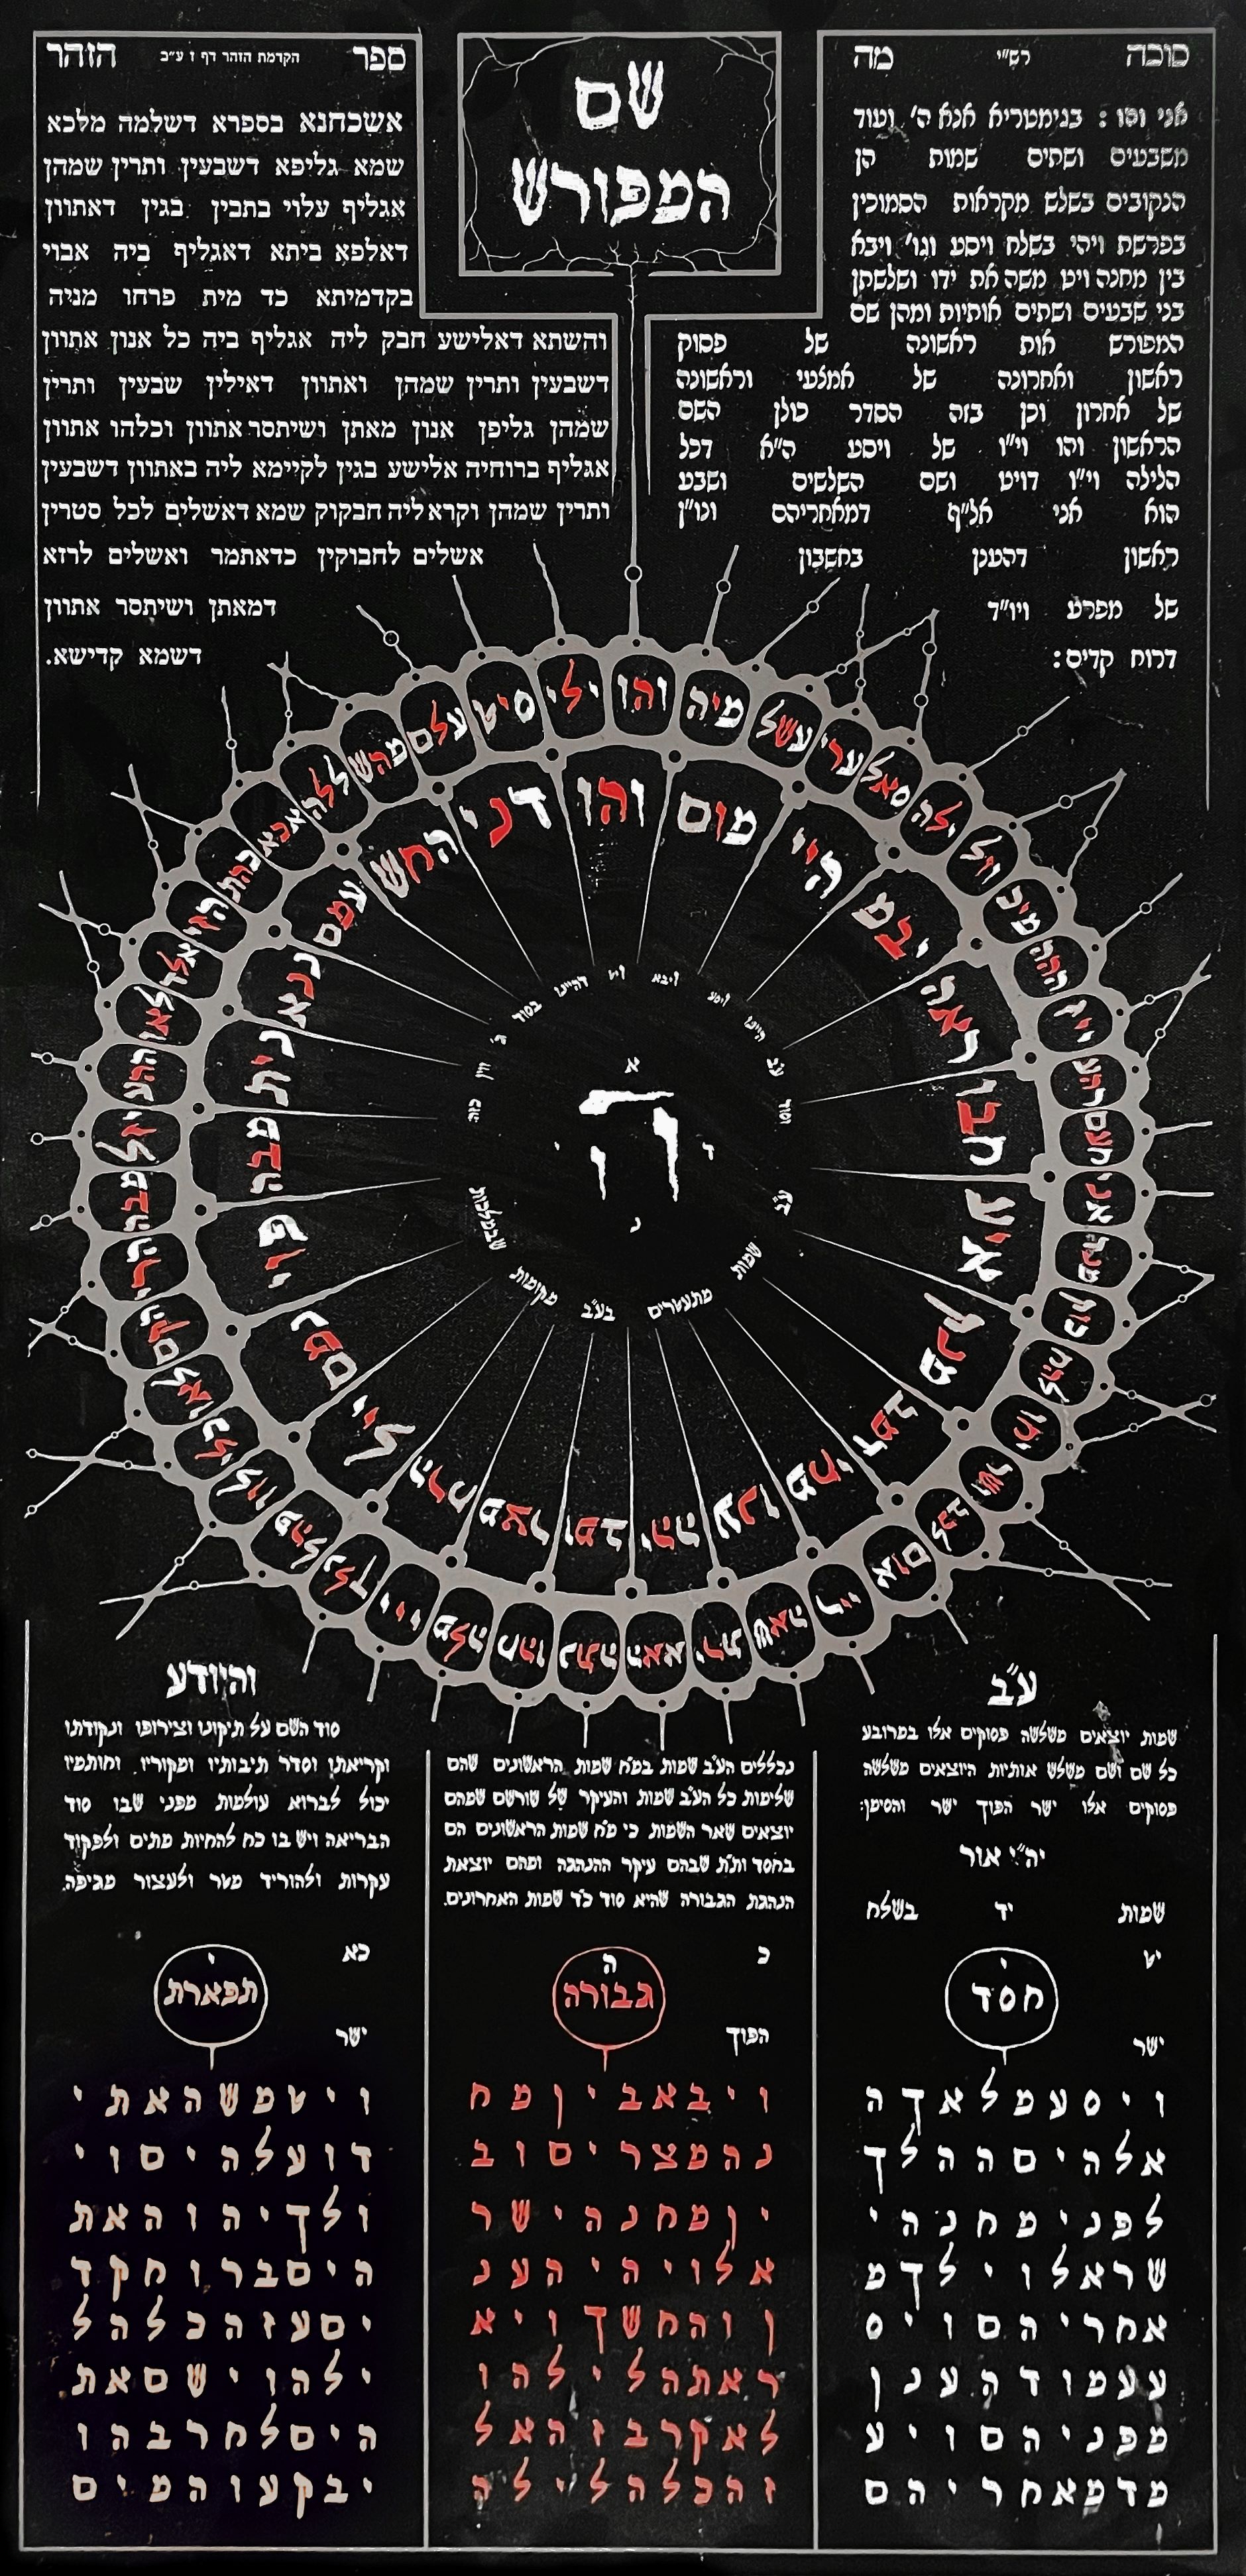 שם
המפורש
סוכה רש"י מה
אני והו : בגימטריא אנא ה', ועוד
משבעים ושתים שמות הן
הנקובים בשלש מקראות הסמוכין
בפרשת ויהי בשלח ויסע וגו' ויבא
בין מחנה ויט משה את ידו ושלשתן
בני שבעים ושתים אותיות ומהן שם
המפורש אות ראשונה של פסוק
ראשון ואחרונה של אמצעי וראשונה
של אחרון וכן בזה הסדר כולן השם
הראשון והו וי"ו של ויסע ה"א דכל
הלילה וי"ו דויט ושם השלשים ושבע
הוא אני אל"ף דמאחריהם ונו"ן
ראשון דהענן בחשבון
של מפרע ויו"ד
דרוח קדים:
ספר הקדמת הזהר דף ז ע"ב הזהר
אשכחנא בספרא דשלמה מלכא
שמא גליפא דשבעין ותרין שמהן
אגליף עלוי בתבין בגין דאתוון
דאלפא ביתא דאגליף ביה אבוי
בקדמיתא כד מית פרחו מניה
והשתא דאלישע חבק ליה אגליף ביה כל אנון אתוון
דשבעין ותרין שמהן ואתוון דאילין שבעין ותרין
שמהן גליפן אנון מאתן ושיתסר אתוון וכלהו אתוון
אגליף ברוחיה אלישע בגין לקיימא ליה באתוון דשבעין
ותרין שמהן וקרא ליה חבקוק שמא דאשלים לכל סטרין
אשלים לחבוקין כדאתמר ואשלים לרזא
דמאתן ושיתסר אתוון
דשמא קדישא.
והו ילי סיט עלם מהש ללה אכא כהת הזי אלד לאו ההע יזל מבה הרי הקם לאו כלי לוו פהל נלך ייי מלה חהו נתה האא ירת שאה ריי אום לכב ושר יחו להח כוק מנד אני חעם רהע ייז ההה מיכ וול ילה סאל ערי עשל מיה
והו דני החש עמם ננא נית מבה פוי נמם ייל הרח מצר ומב יהה ענו מחי דמב מנק איע חבו ראה יבמ היי מום
ויסע ויבא ויט דהיינו בסוד ג' ווין כזה
היינו ע"ב וסוד
ע"ב שמות מתעטרים בע"ב מקומות שבמלכות
א
ה
י
נ
ע"ב
שמות יוצאים משלשה פסוקים אלו במרובע
כל שם ושם משלש אותיות היוצאים משלשה
פסוקים אלו ישר הפוך ישר והסימן:
יה"י אור
שמות יד בשלח
נכללים הע"ב שמות במ"ח שמות הראשונים שהם
שלימות כל הע"ב שמות והעיקר של שורשם שמהם
יוצאים שאר השמות כי מ"ח שמות הראשונים הם
בחסד ות"ת שבהם עיקר ההנהגה ומהם יוצאת
הנהגת הגבורה שהיא סוד כ"ד שמות האחרונים.
והיודע
סוד השם על תיקונו וצירופו ונקודתו
וקריאתו וסדר תיבותיו ומקוריו. וחותמיו
יכול לברוא עולמות מפני שבו סוד
הבריאה ויש בו כח להחיות מתים ולפקוד
עקרות ולהוריד מטר ולעצור מגיפה.
יט
י
חסד
ישר
ו י ס ע מ ל א ך ה
א ל ה י ם ה ה ל ך
ל פ נ י מ ח נ ה י
ש ר א ל ו י ל ך מ
א ח ר י ה ם ו י ס
ע ע מ ו ד ה ע נ ן
מ פ נ י ה ם ו י ע
מ ד מ א ח ר י ה ם
כ
ה
גבורה
הפוך
ו י ב א ב י ן מ ח
נ ה מ צ ר י ם ו ב
י ן מ ח נ ה י ש ר
א ל ו י ה י ה ע נ
ן ו ה ח ש ך ו י א
ר א ת ה ל י ל ה ו
ל א ק ר ב ז ה א ל
ז ה כ ל ה ל י ל ה
כא
י
תפארת
ישר
ו י ט מ ש ה א ת י
ד ו ע ל ה י ם ו י
ו ל ך י ה ו ה א ת
ה י ם ב ר ו ח ק ד
י ם ע ז ה כ ל ה ל
י ל ה ו י ש ם א ת
ה י ם ל ח ר ב ה ו
י ב ק ע ו ה מ י ם